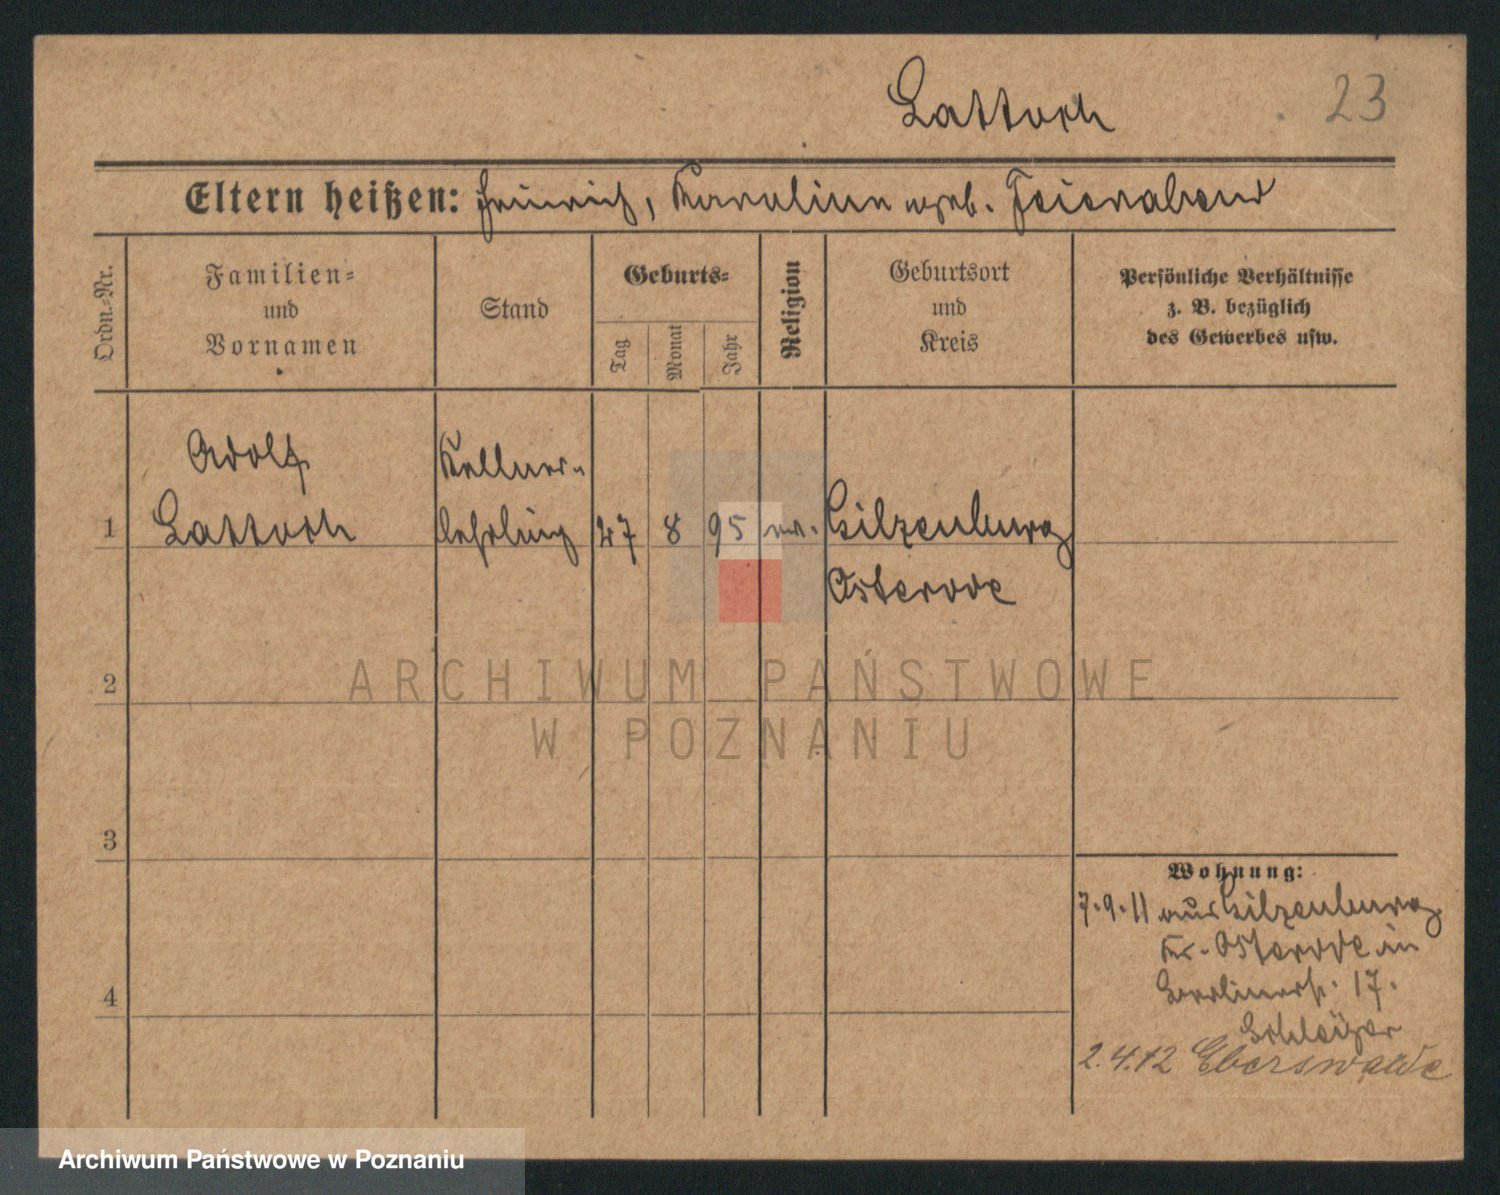 Lattoch
23
Eltern heißen: Heinrich, Karoline geb. Feierabend
Ordn.-Nr.
Familien-
und
Vornamen
Stand
Geburts-
Tag
Monat
Jahr
Religion
Geburtsort
und
Kreis
Persönliche Verhältnisse
z. B. bezüglich
des Gewerbes usw.
1
Adolf
Lattoch
Kellner-
lehrling
27
8
95
ev.
Gilgenburg
Osterode
2
3
4
Wohnung:
7.9.11 aus Gilgenburg
Kr. Osterode in
Berlinerstr. 17.
2.4.12 Eberswalde
ARCHIWUM PAŃSTWOWE
W POZNANIU
Archiwum Państwowe w Poznaniu